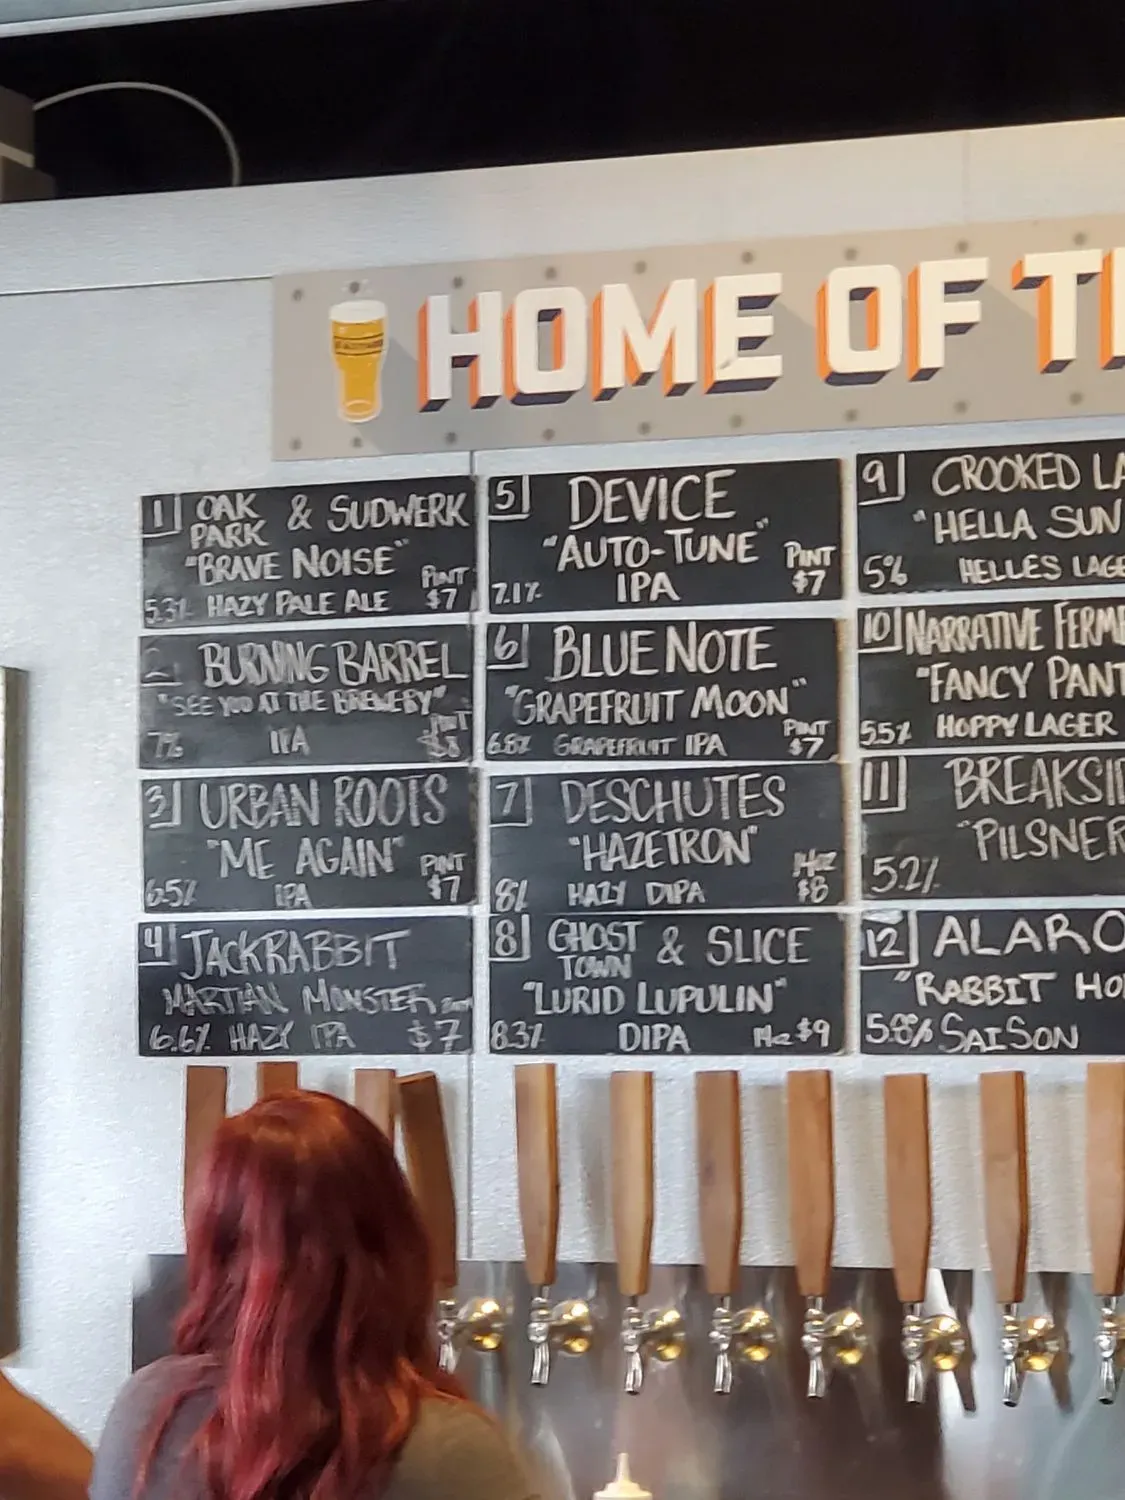 HOME OF T
1 OAK PARK & SUDWERK
"BRAVE NOISE"
PINT
5.3% HAZY PALE ALE $7
2 BURNING BARREL
"SEE YOU AT THE BREWERY"
PINT
7% IPA $8
3 URBAN ROOTS
"ME AGAIN"
PINT
6.5% IPA $7
4 JACKRABBIT
MARTIAN MONSTER
6.6% HAZY IPA $7
5 DEVICE
"AUTO-TUNE"
PINT
7.1% IPA $7
6 BLUE NOTE
"GRAPEFRUIT MOON"
PINT
6.8% GRAPEFRUIT IPA $7
7 DESCHUTES
"HAZETRON"
14oz
8% HAZY DIPA $8
8 GHOST TOWN & SLICE
"LURID LUPULIN"
8.3% DIPA 14oz $9
9 CROOKED LA
"HELLA SUN
5% HELLES LAGE
10 NARRATIVE FERME
"FANCY PANT
5.5% HOPPY LAGER
11 BREAKSI
"PILSNER
5.2%
12 ALARO
"RABBIT HO
5.8% SAISON